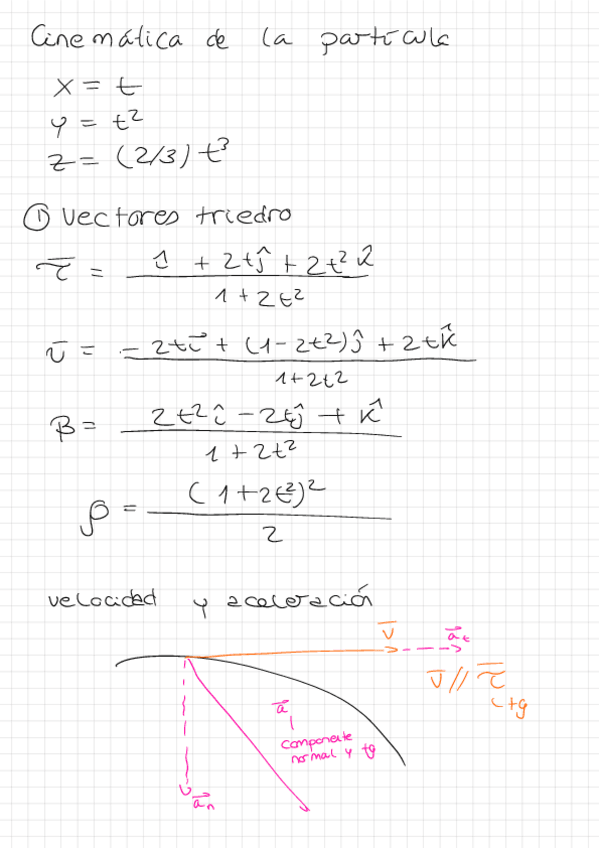 Cinemática de la partícula
x = t
y = t²
z = (2/3) t³
① Vectores triedro
τ̄ = (î + 2tĵ + 2t² k̂) / (1 + 2t²)
ῡ = (-2ti⃗ + (1-2t²)ĵ + 2tk̂) / (1+2t²)
β = (2t²î - 2tĵ + k̂) / (1 + 2t²)
ρ = (1+2t²)² / 2
velocidad y aceleración
v̄
a⃗t
v̄ // τ̄
tg
a⃗
componente
normal y tg
a⃗n